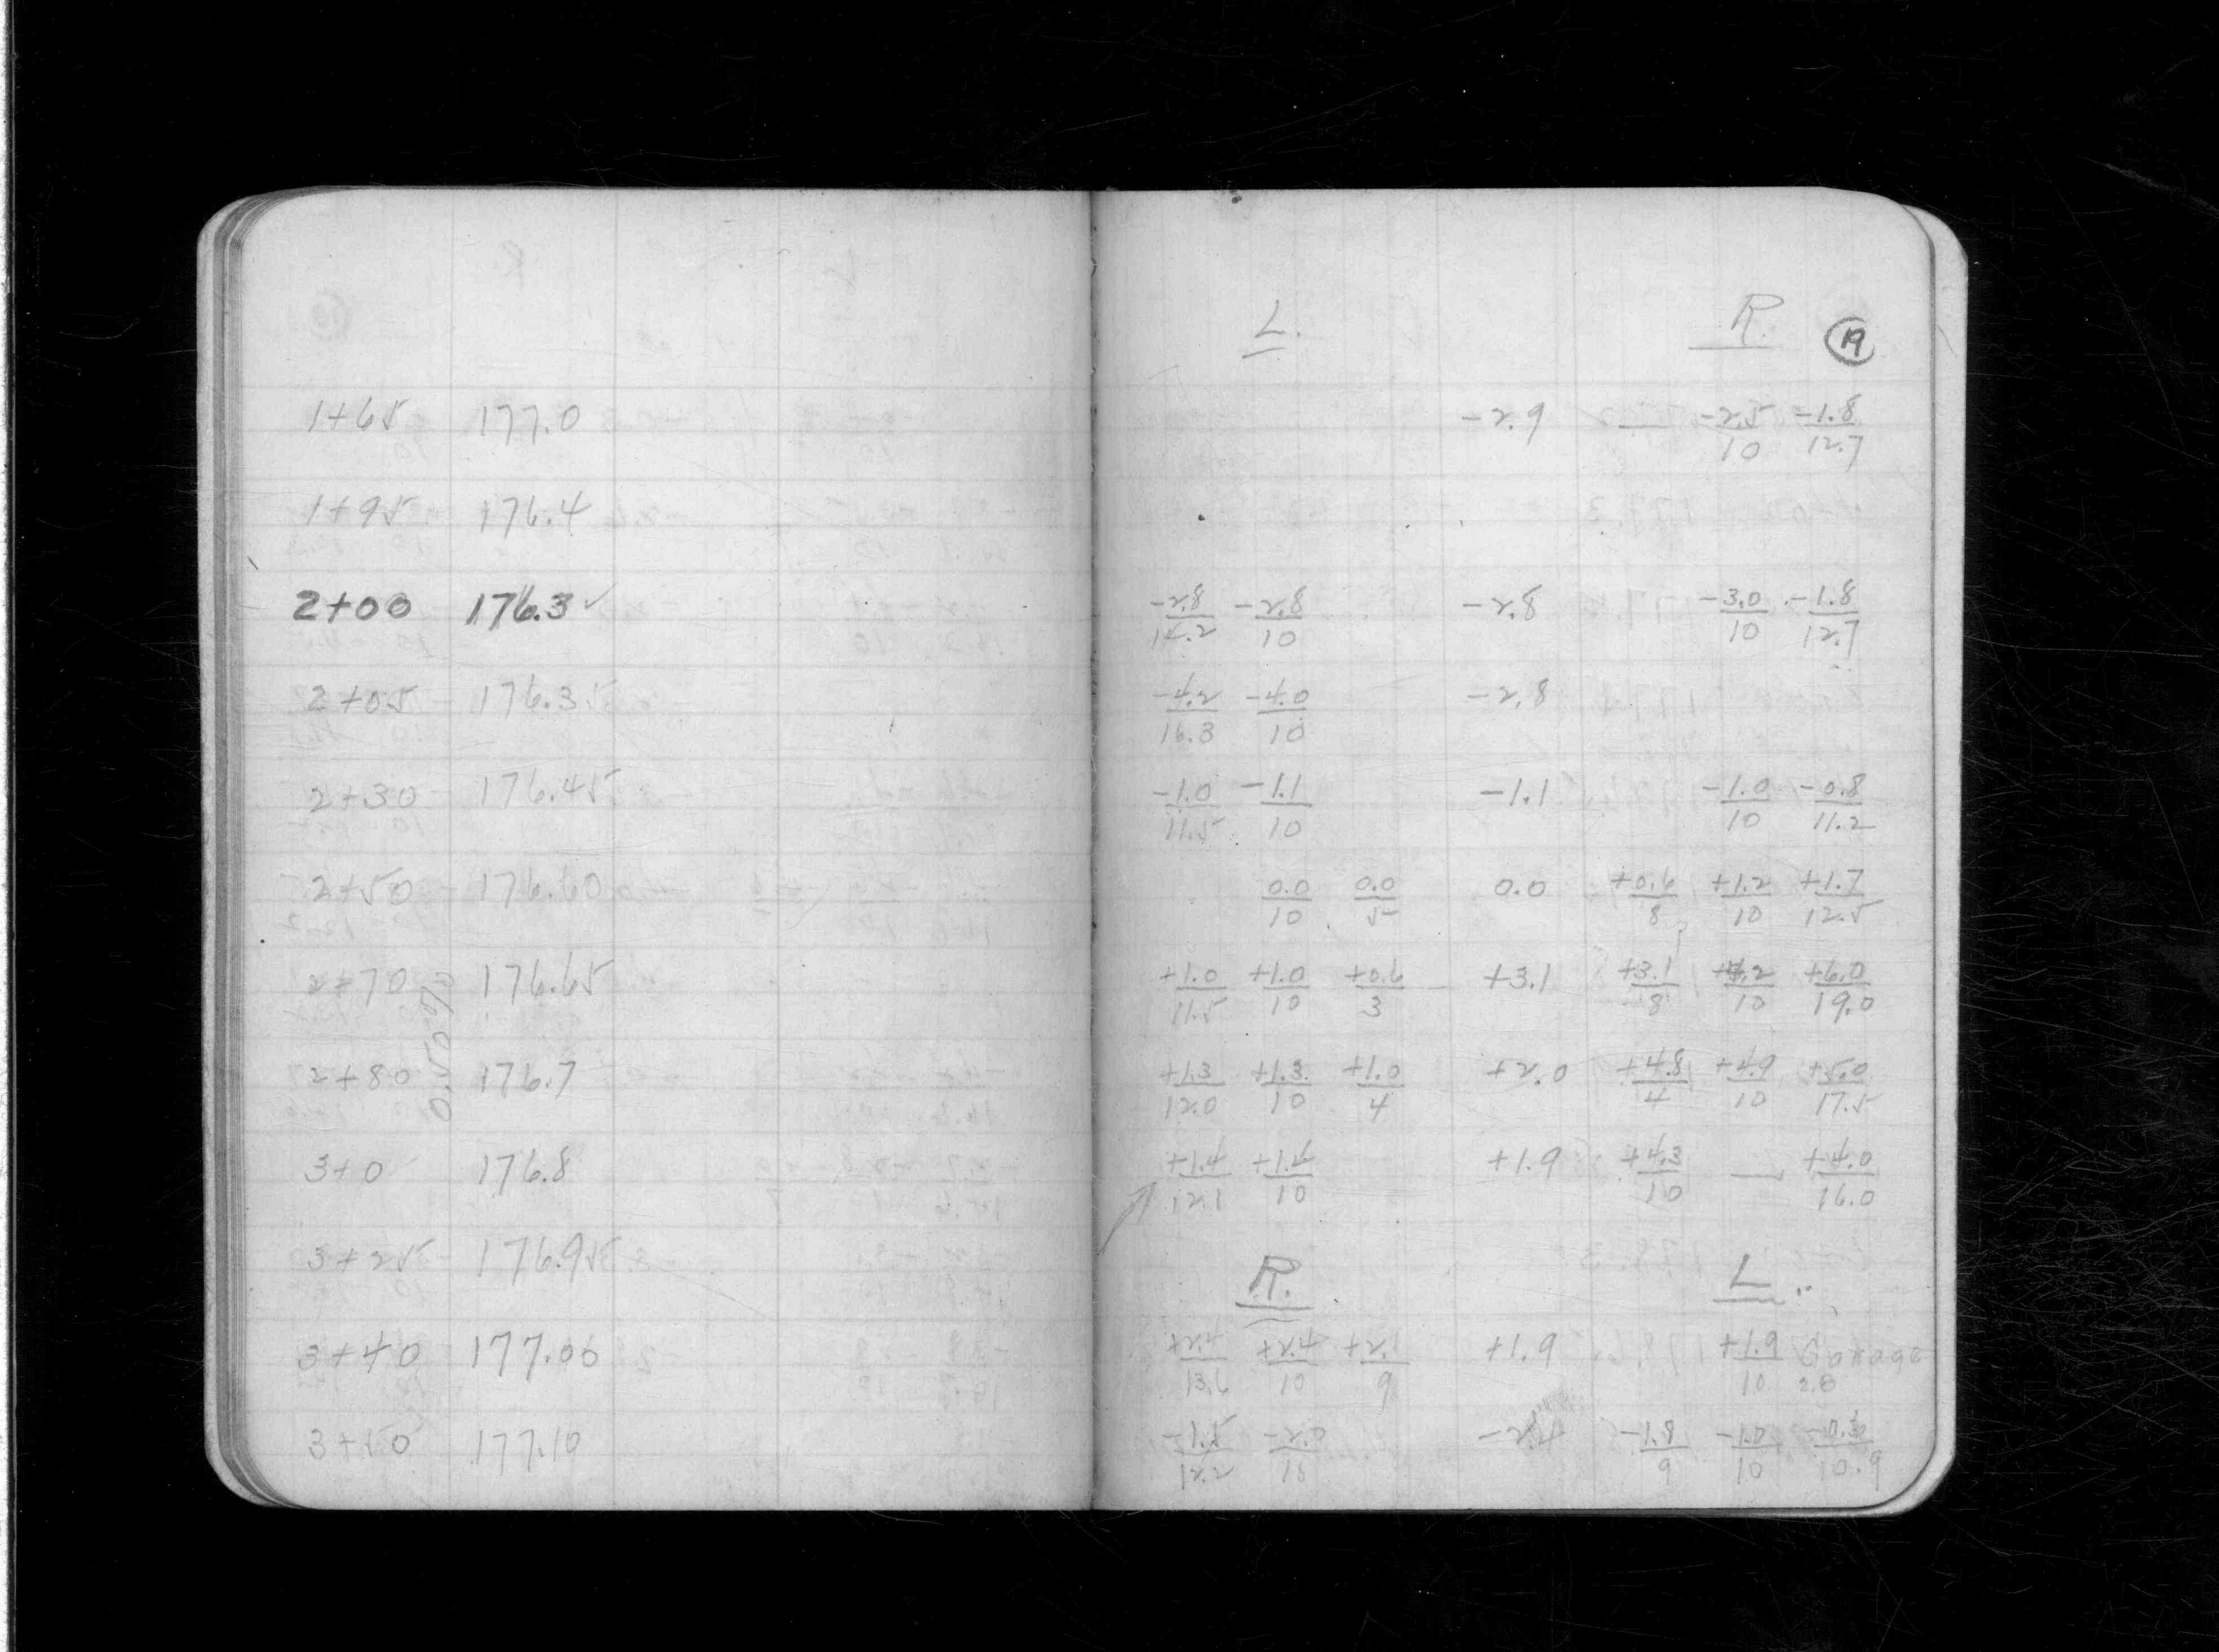 L. R. 19
1+65 177.0 -2.9 — -2.5/10 -1.8/12.7
1+95 176.4
2+00 176.3✓ -2.8/14.2 -2.8/10 -2.8 -3.0/10 -1.8/12.7
2+05 176.35 -4.2/16.3 -4.0/10 -2.8
2+30 176.45 -1.0/11.5 -1.1/10 -1.1 -1.0/10 -0.8/11.2
2+50 176.60 0.0/10 0.0/5 0.0 +0.6/8 +1.2/10 +1.7/12.5
2+70 176.65 +1.0/11.5 +1.0/10 +0.6/3 +3.1 +3.1/8 /10 +6.0/19.0
0.50%
2+80 176.7 +1.3/12.0 +1.3/10 +1.0/4 +2.0 +4.8/4 +4.9/10 +5.0/17.5
3+0 176.8 +1.4/12.1 +1.4/10 +1.9 +4.3/10 — +4.0/16.0
3+25 176.95
R. L.
3+40 177.00 +2.4/13.6 +2.4/10 +2.1/9 +1.9 +1.9/10 Garage 2.8
3+50 177.10 -1.5/12.2 -2.0/10 -2.4 -1.8/9 -1.0/10 -0.3/10.9